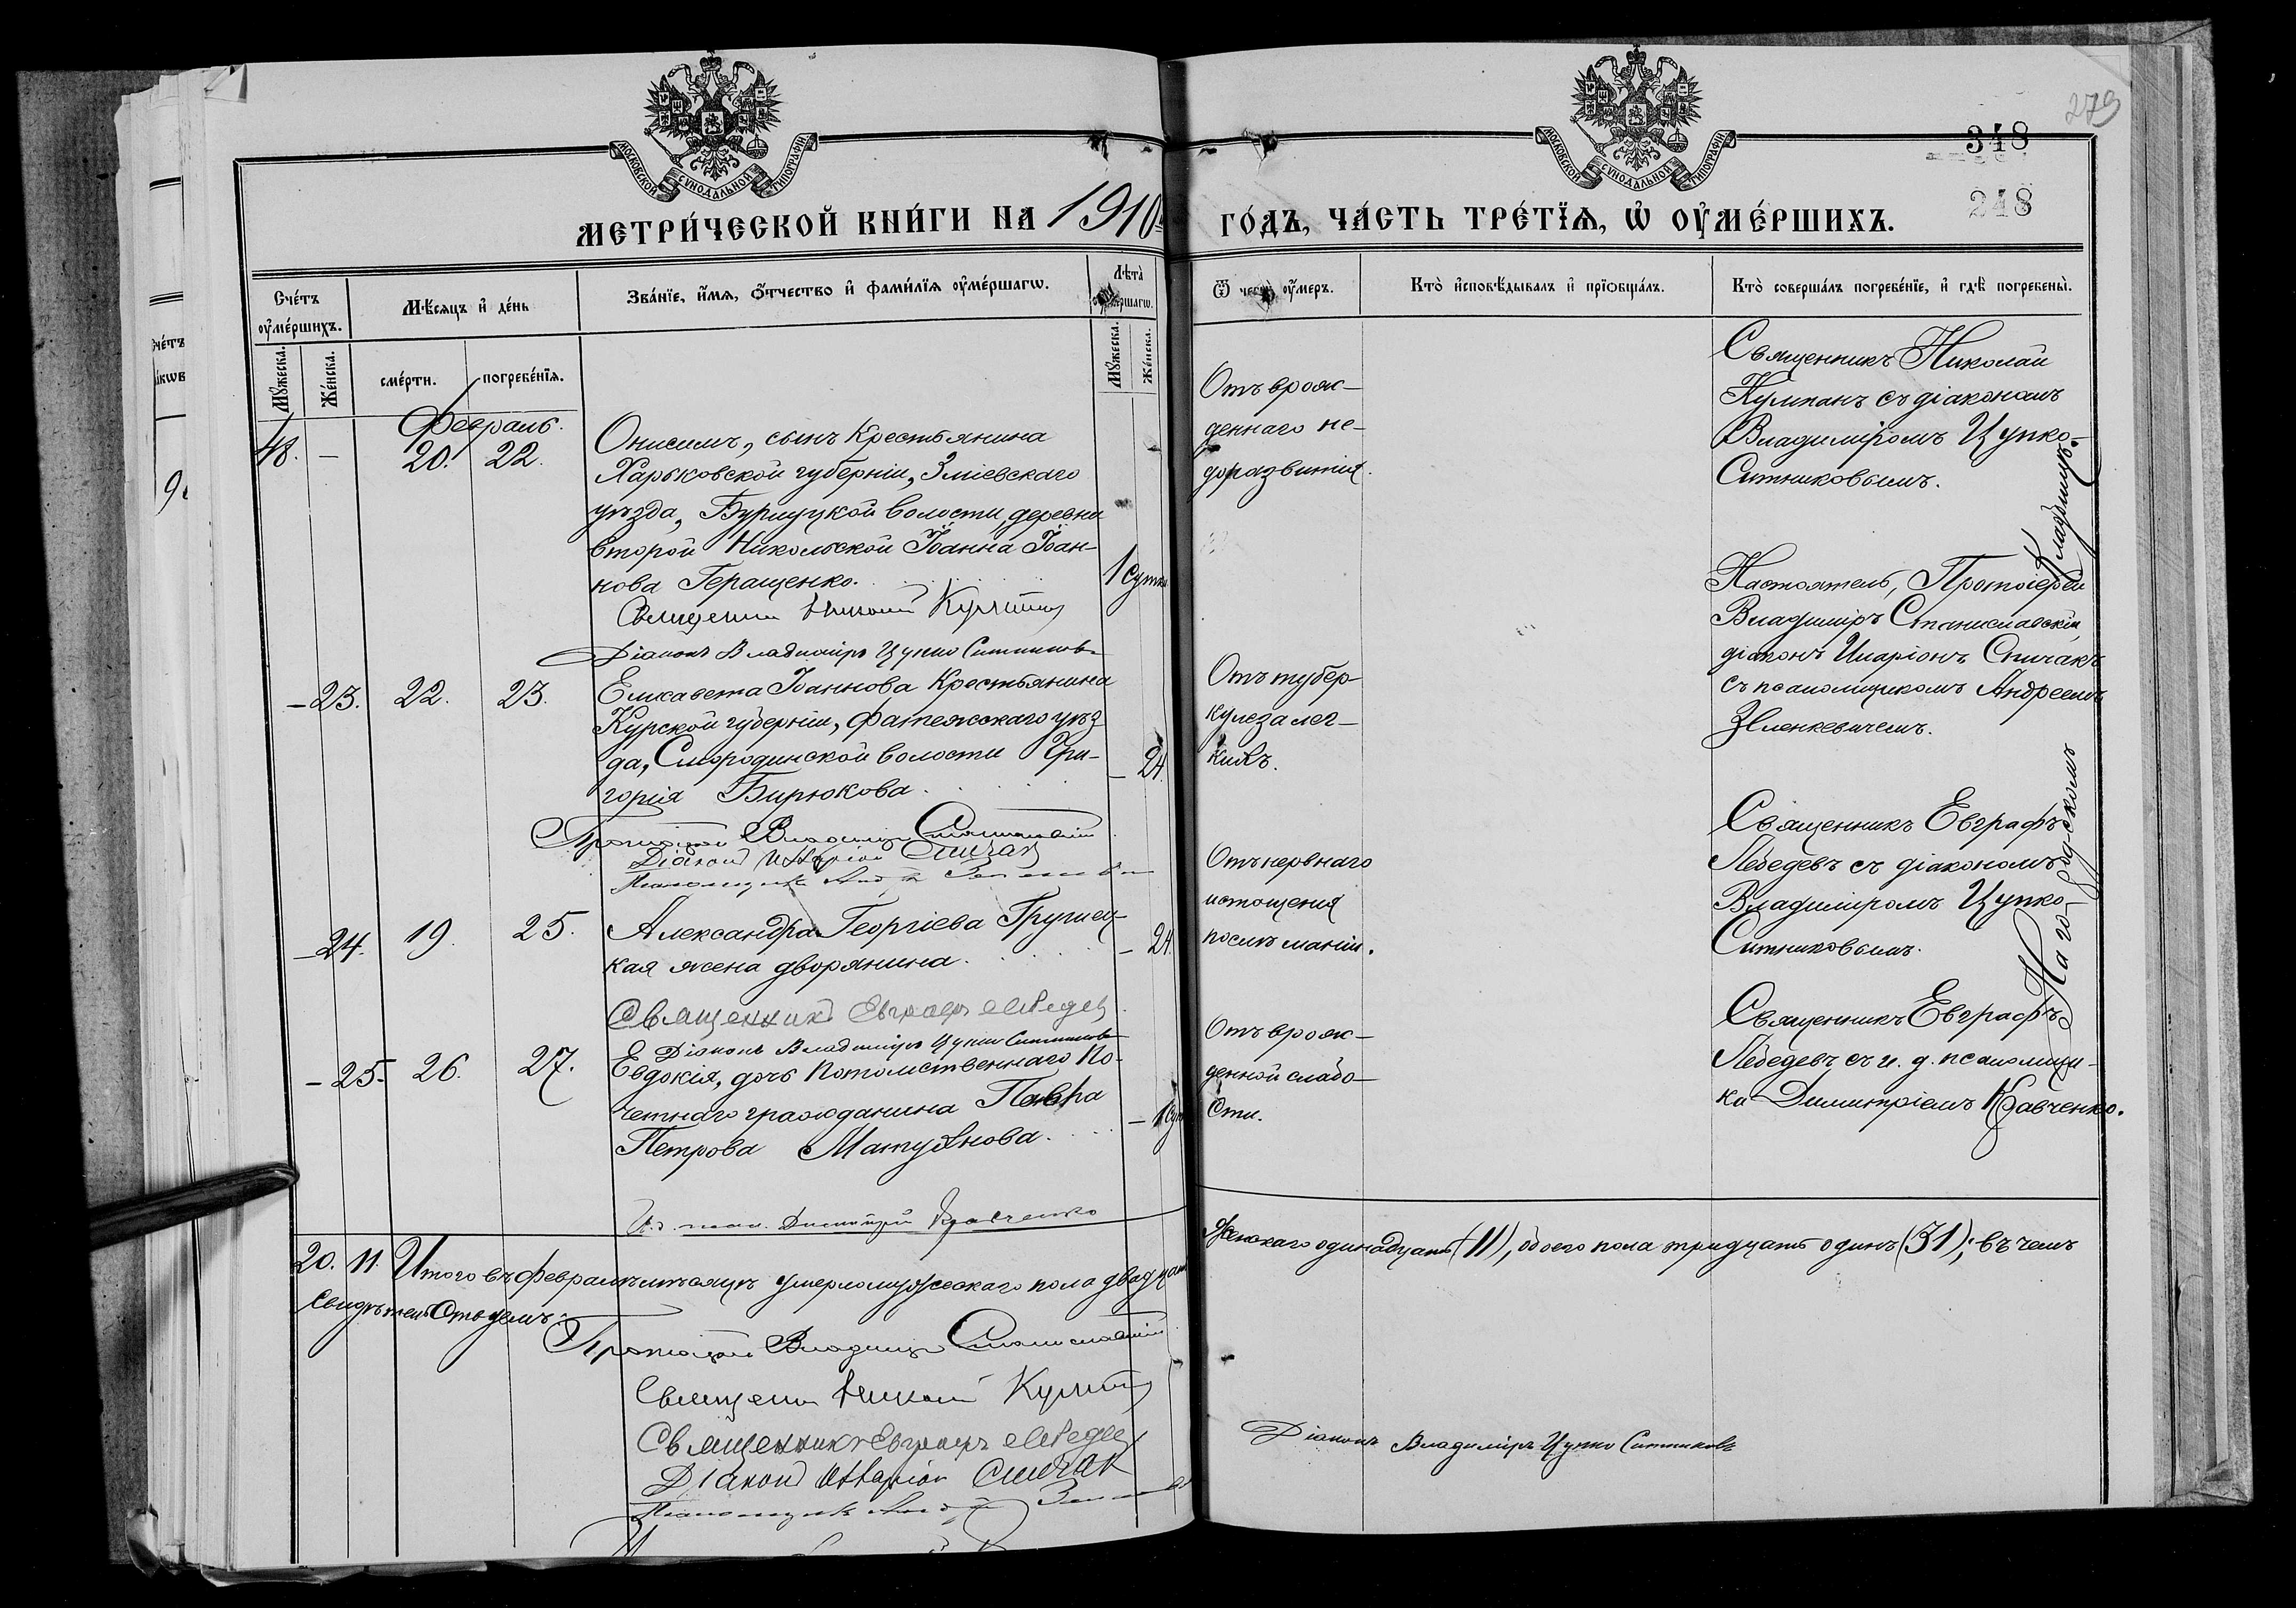 279
348
248
МОСКОВСКОЙ СѴНОДАЛЬНОЙ ТИПОГРАФІИ
МОСКОВСКОЙ СѴНОДАЛЬНОЙ ТИПОГРАФІИ
МЕТРИ́ЧЕСКОЙ КНИ́ГИ НА 1910
ГО́ДЪ, ЧА́СТЬ ТРЕ́ТЇѦ, Ѡ҆ ОУ҆МЕ́РШИХЪ.
Сче́тъ оу҆ме́ршихъ.
Мѣ́сяцъ и҆ де́нь
Зва́нїе, и҆́мя, ѻ҆́тчество и҆ фами́лїя оу҆ме́ршагѡ.
Лѣ́та оу҆ме́ршагѡ.
Ѿ чегѡ̀ оу҆́меръ.
Кто̀ и҆сповѣ́дывалъ и҆ прїѡбща́лъ.
Кто̀ соверша́лъ погребе́нїе, и҆ гдѣ̀ погребены̀.
Мꙋ́жеска.
Же́нска.
сме́рти.
погребе́нїя.
Мꙋ́жеска.
Же́нска.
Февраль.
48. – 20. 22.
Онисимъ, сынъ Крестьянина
Харьковской губерніи, Зміевскаго
уѣзда, Бурлуцкой волости, деревни
второй Никольской Іоанна Іоан-
нова Геращенко.
1 сутки
Священникъ Николай Кулпанъ
Діаконъ Владиміръ Цупко Ситниковъ
Отъ врож-
деннаго не-
доразвитія.
Священникъ Николай
Кулпанъ съ діакономъ
Владиміромъ Цупко-
Ситниковымъ.
– 23. 22. 23.
Елисавета Іоаннова Крестьянина
Курской губерніи, Фатежскаго уѣз-
да, Смородинской волости Гри-
горія Бирюкова.
– 24.
Протоіерей Владиміръ Станиславскій
Діаконъ Иларіонъ Спичакъ
Псаломщикъ Андрей
Отъ тубер-
кулеза лег-
кихъ.
Настоятель, Протоіерей
Владиміръ Станиславскій,
діаконъ Иларіонъ Спичакъ
съ псаломщикомъ Андреемъ
Зеленкевичемъ.
– 24. 19. 25.
Александра Георгіева Грушец-
кая жена дворянина.
– 24.
Священникъ Евграфъ Лебедевъ
Діаконъ Владиміръ Цупко Ситниковъ
Отъ нервнаго
истощенія
послѣ маніи.
Священникъ Евграфъ
Лебедевъ съ діакономъ
Владиміромъ Цупко-
Ситниковымъ.
– 25. 26. 27.
Евдокія, дочь Потомственнаго По-
четнаго гражданина Павла
Петрова
– 1 сут
И. д. псал. Димитрій Кравченко
Отъ врож-
денной слабо-
сти.
Священникъ Евграфъ
Лебедевъ съ и. д. псаломщи-
ка Димитріемъ Кравченко.
На городскомъ
Кладбищѣ.
20. 11. Итого въ февралѣ мѣсяцѣ умерло мужескаго пола двадцать
Женскаго одинадцать (11), обоего пола тридцать одинъ (31); въ чемъ
свидѣтельствуемъ:
Протоіерей Владиміръ Станиславскій
Священникъ Николай Кулпанъ
Священникъ Евграфъ Лебедевъ
Діаконъ Иларіонъ Спичакъ
Псаломщикъ Андрей
Діаконъ Владиміръ Цупко Ситниковъ